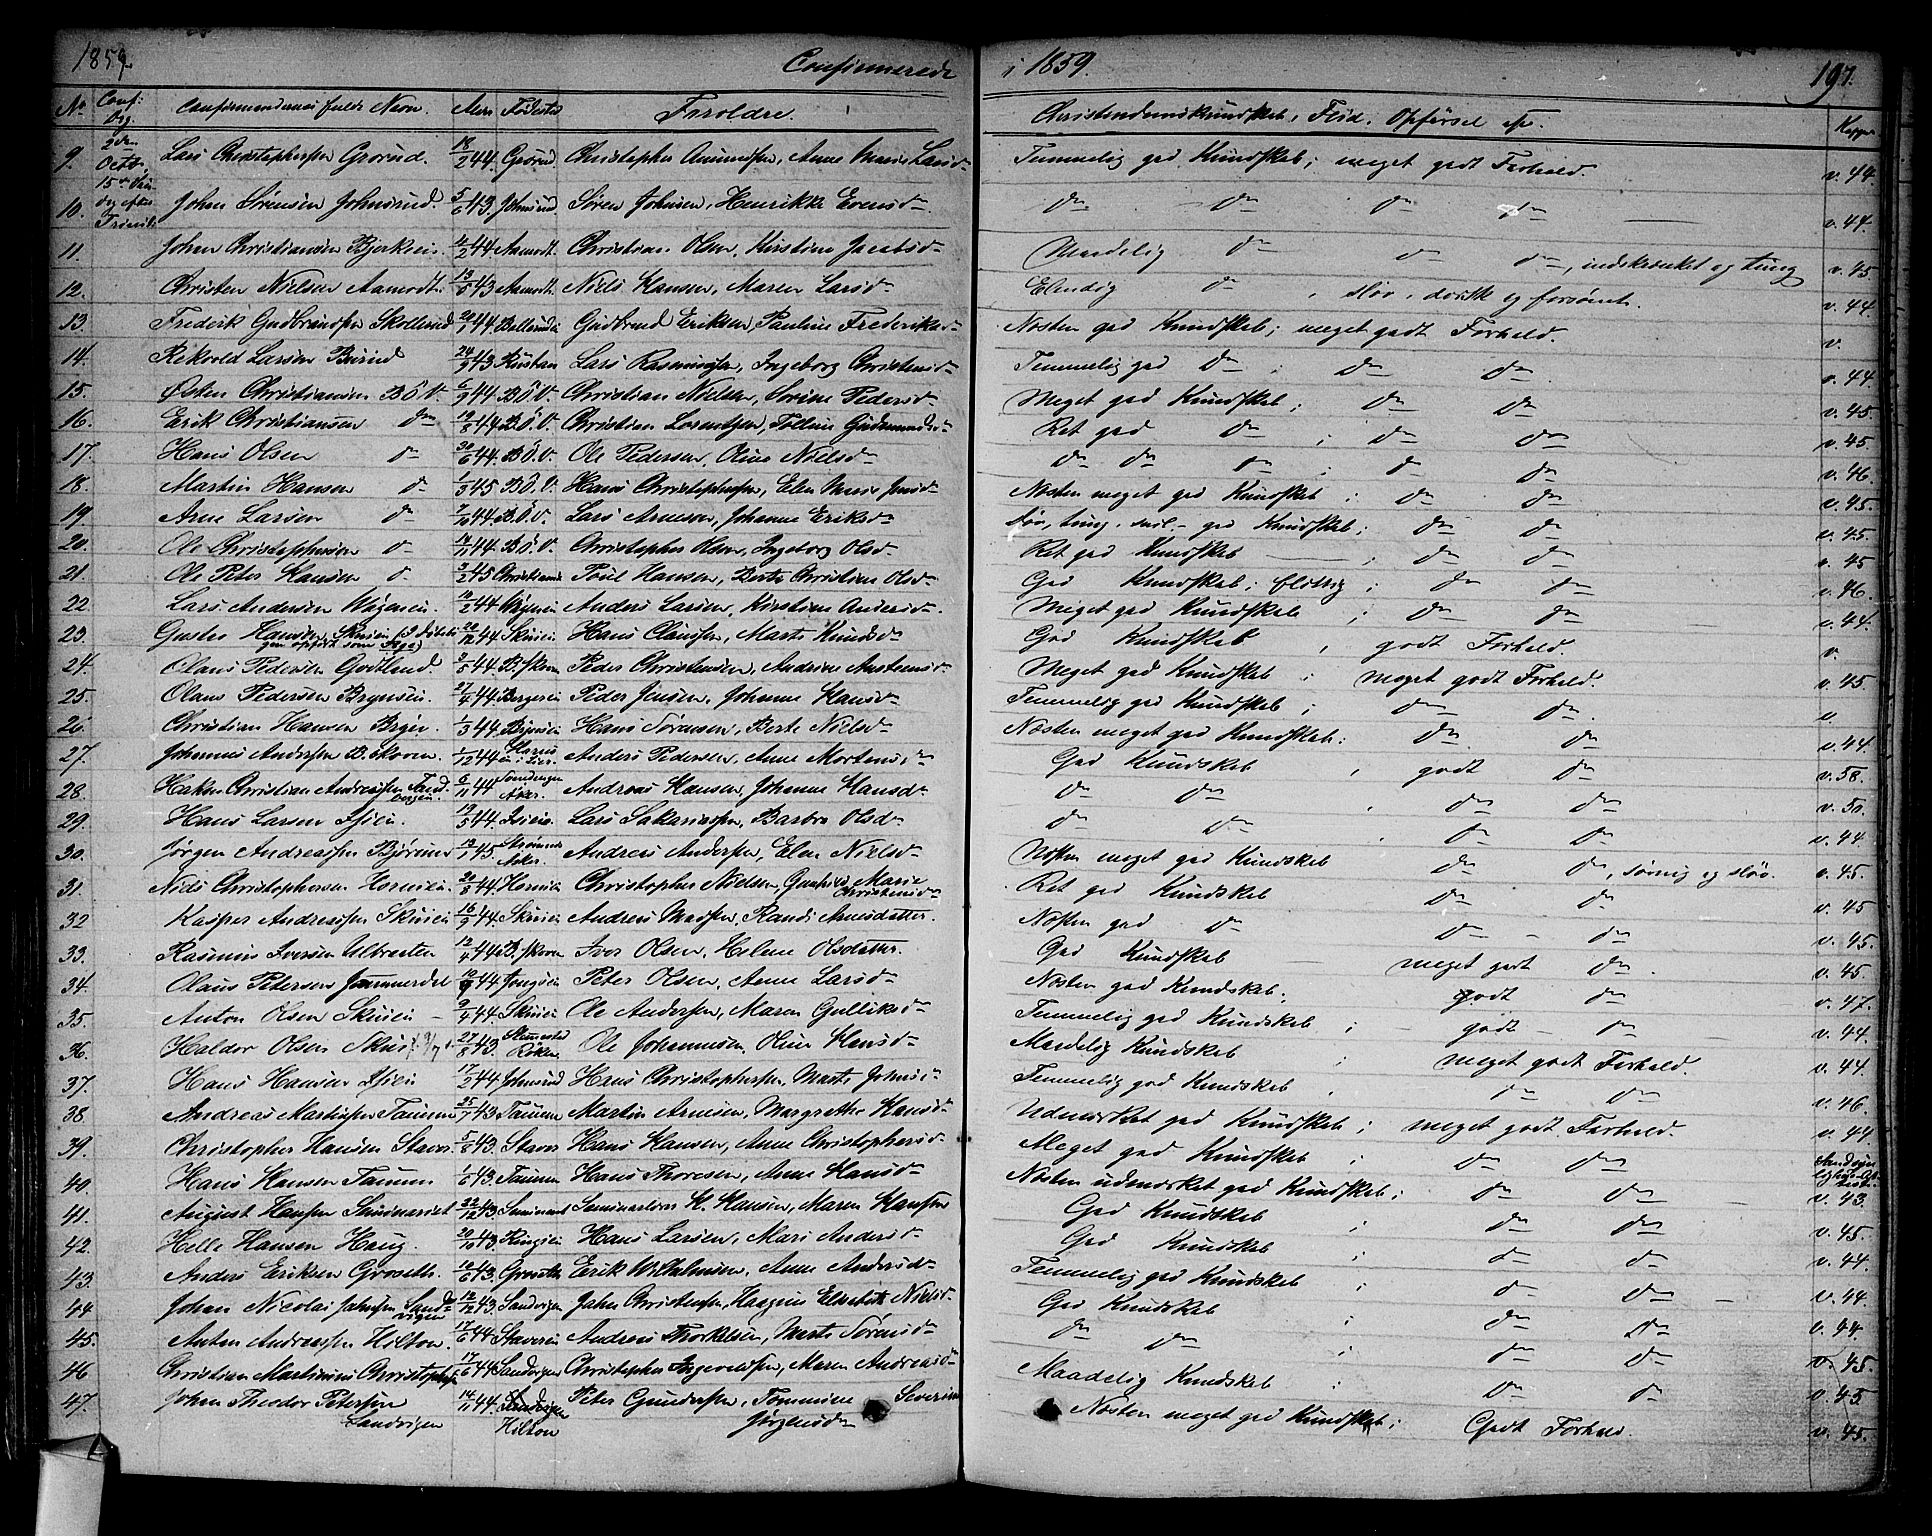 1859. Confirmerede i 1859. 197.
No Conf: Dag. Confirmandernes fulde Navn. Alder Fødested Foreldre. Christendomskundskab, Flid, Opførsel etc. Kopper
9. 2den Octbr, Lars Christophersen Grorud. 18/2 44. Grorud Christopher Amundsen, Anne Marie Larsd- Temmelig god Kundskab; meget godt Forhold. v. 44.
10. 15de Søndag efter Trinit Johan Sørensen Johnsrud. 5/6 43. Johnsrud Søren Johnsen, Henrikke Evensd- do do do do v. 44.
11. Johan Christiansen Bjerkeien. 44 Aamodt. Christian Olsen, Kirstine Jacobsd- Maadelig do do do, indskrænket og tung v. 45
12. Christen Nielsen Aamodt. 13/5 43 Aamodt. Niels Hansen, Maren Larsd- Elendig do, sløv, dorsk og forsømt. v. 44
13. Frederik Gudbrandsen Skollerud 20/1 44 Gudbrand Eriksen, Pauline Frederiksd- Næsten god Kundskab; meget godt Forhold. v.
14. Larsen 24/9 43 Lars Rasmussen, Ingeborg Christensd- Temmelig god do; do do. v. 44
15. Østen Christiansen B.Ö.V. 6/9 44. B.Ö.V. Christian Nielsen, Sørine Pedersd- Meget god Kundskab; do do v. 45.
16. Erik Christiansen do 19/8 44 B.Ö.V. Christian Lorentsen, Gudmundsd- Ret god do; do do v. 45
17. Hans Olsen do 30/6 44. B.Ö.V. Ole Pedersen, Oline Nielsd- do do do; do do v. 46
18. Martin Hansen do 1/3 45 B.Ö.V. Hans Christophersen, Elen Marie Jensd- Næsten meget god Kundskab; do do v. 45.
19 Arne Larsen do 7/10 44. B.Ö.V. Lars Arnesen, Johanne Eriksd- tung, god Kundskab; do do v. 45.
20. Ole Christophersen do 14/11 44. B.Ö.V. Christopher Olsen, Ingeborg Olsd- Ret god Kundskab; do do v. 45
21. Ole Peter Hansen do 3/2 45 Christiania Poul Hansen, Berte Christine Olsd- God Kundskab; flittig; do do v. 46.
22. Lars Andersen Wøyenei. 10/2 44 Wøyenei Anders Larsen, Kirstine Andersd. Meget god Kundskab; do do v. 44.
23. Gustav Hansen, Skuien 44 Skuien Hans Clausen, Marte Knudsd- God Kundskab, godt Forhold. v.
24. Olaus Pedersen Godtland. 3/5 44. B.Skoven Peder Christensen, Andrine Austensd- Meget god Kundskab; meget godt Forhold. v. 45.
25. Olaus Pedersen 27/4 44 Peder Jensen, Johanne Hansd- Temmelig god Kundskab; do do. v
26. Christian Hansen 1/3 44. Hans Sørensen, Berte Nielsd- Næsten meget god Kundskab: do do v. 44
27. Johannes Andersen B.Skoven. 1/12 44 i Lier. Anders Pedersen, Anne Mortensd- God Kundskab, godt do v. 58.
28. Hakon Christian Andreassen 6/11 44 Asker. Andreas Hansen, Johanne Hansd- do do, do do v. 50.
29. Hans Larsen Isiei. 19/5 44. Isiei Lars Sakariassen, Barbro Olsd- do do, do do v. 44.
30. Jørgen Andreassen Bjørum 13/1 45. Asker. Andreas Andersen, Elen Nielsd- Næsten meget god Kundskab do do, søvnig og sløv. v. 45.
31. Niels Christophersen Hornien. 20/8 44. Hornien Christopher Nielsen, Gunhild Marie Christensd- Ret god Kundskab do do v. 45
32 Kasper Andreassen Skuien 16/9 44. Skuien Andreas Madsen, Randi Arnesdatter. Næsten god do do do v. 45.
33. Rasmus Iversen 12/4 44 B.Skoven Iver Olsen, Helene Olsdatter. God Kundskab meget godt do. v. 45.
34. Olaus Petersen Jammerdal 44 Peter Olsen, Anne Larsd- Næsten god Kundskab; godt do v. 47.
35. Anton Olsen Skuien 9/4 44. Skuien Ole Andersen, Maren Gulliksd- Temmelig god Kundskab; godt do v. 44.
36. Haldor Olsen 27/8 43. Røken Ole Johannesen, Oline Hansd- Maadelig Kundskab; meget godt Forhold. v. 44.
37. Hans Hansen Isiei 17/2 44 Johnsrud Hans Christophersen, Marte Johnsd- Temmelig god Kundskab, do do v. 46.
38. Andreas Martinsen Tanum 25/7 43. Tanum Martin Arnesen, Margrethe Hansd- Udmærket god Kundskab; meget godt Forhold. v. 44
39. Christopher Hansen Staver 5/8 43. Staver Hans Hansen, Anne Christophersd- Meget god Kundskab; do do
40. Hans Hansen Tanum 1/6 43. Tanum Hans Thoresen, Anne Hansd- Næsten udmærket god Kundskab; do do v. 43.
41. August Hansen Seminariet 22/12 43. Seminariet Seminarlærer H. Hansen, Maren Hansen God Kundskab; do do v. 45.
42. Helle Hansen Haug. 20/10 43. Hans Larsen, Mari Andersd- God Kundskab; do do v. 44.
43. Anders Eriksen Groseth. 10/6 43. Groseth Erik Wilhelmsen, Anne Andersd- Temmelig god Kundskab; do do v. 44.
44. Johan Nicolai Johnsen Sandvigen 12/12 43. Sandvigen John Christensen, Elisabeth Nielsd- God Kundskab do do v. 44
45. Anton Andreassen Hilton. 17/6 44 Staverei Andreas Thorkelsen, Marte Sørensd- do do; do do v. 45.
46 Christian Martinius Christophers. 17/6 44 Sandvigen Christopher Ingevaldsen, Maren Andreasd- Maadelig Kundskab; do do v. 45.
47. Johan Theodor Petersen Sandvigen 14/11 44. Hilton Peter Gundersen, Tommine Severine Jørgensd- Næsten meget god Kundskab; Godt Forhold. v. 45.